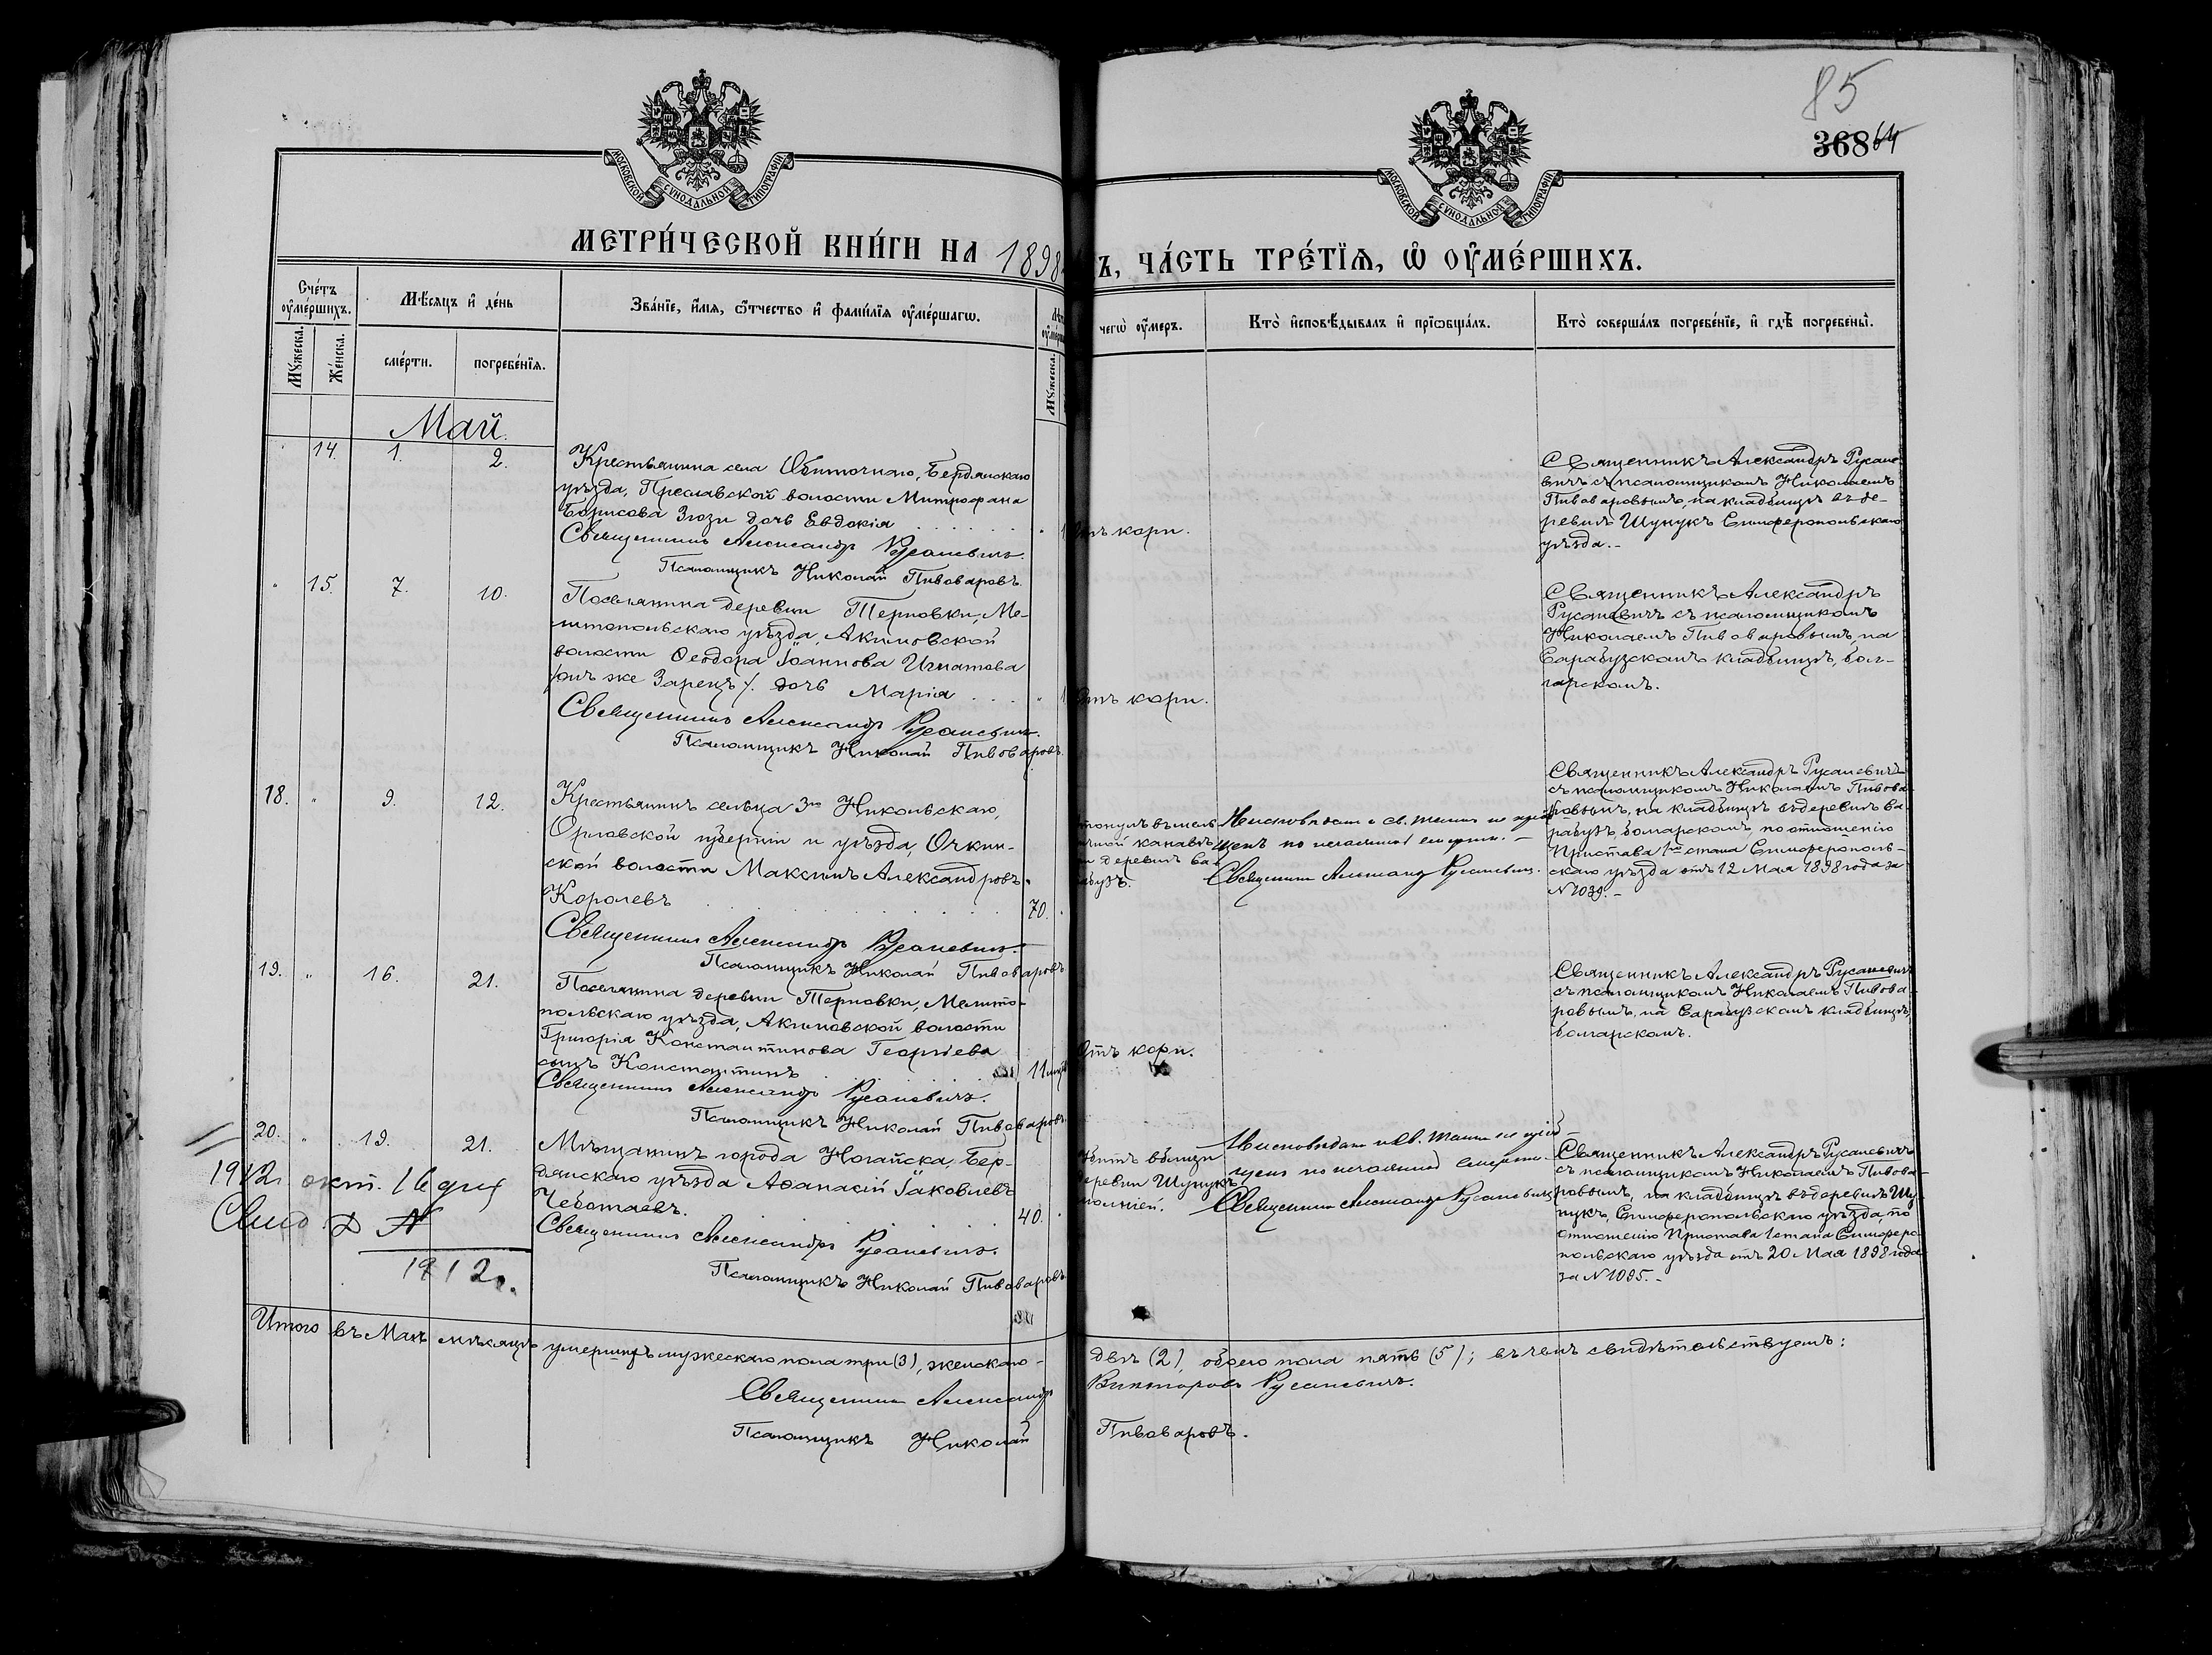 85
368 64
МОСКОВСКОЙ СѴНОДАЛЬНОЙ ТИПОГРАФІИ
МОСКОВСКОЙ СѴНОДАЛЬНОЙ ТИПОГРАФІИ
МЕТРИ́ЧЕСКОЙ КНИ́ГИ НА 1898
Ъ, ЧА́СТЬ ТРЕ́ТЇѦ, Ѡ ОУМЕ́РШИХЪ.
Сче́тъ оумершихъ.
Мѣсяцъ и де́нь
Зва́нїе, и́мя, ѻтчество и фами́лїя оуме́ршагѡ.
Мꙋжеска.
Же́нска.
сме́рти.
погребе́нїя.
Мꙋжеска.
чегѡ̀ оу́меръ.
Кто̀ исповѣ́дывалъ и прїѡбща́лъ.
Кто̀ соверша́лъ погребе́нїе, и гдѣ̀ погребены̀.
Май.
" 14. 1. 2.
Крестьянина села Обиточнаго, Бердянскаго
уѣзда, Преславской волости Митрофана
Борисова Зюзи дочь Евдокія
" 1
Отъ кори.
Священникъ Александръ Русаневичъ.
Псаломщикъ Николай Пивоваровъ.
Священникъ Александръ Русане
вичъ съ псаломщикомъ Николаемъ
Пивоваровымъ, на кладбищѣ въ де-
ревнѣ Шунукъ Симферопольскаго
уѣзда.-
" 15. 7. 10.
Поселянина деревни Терновки, Ме-
литопольскаго уѣзда, Акимовской
волости Ѳеодора Іоаннова Игнатова
/онъ же Зарецъ/. дочь Марія
" 1
Отъ кори.
Священникъ Александръ Русаневичъ.
Псаломщикъ Николай Пивоваровъ.
Священникъ Александръ
Русаневичъ съ псаломщикомъ
Николаемъ Пивоваровымъ, на
Сарабузскомъ кладбищѣ, бол-
гарскомъ.
18. " 9. 12.
Крестьянинъ сельца 3го Никольскаго,
Орловской губерніи и уѣзда, Очкин-
ской волости Максимъ Александровъ
Королевъ
70.
Священникъ Александръ Русаневичъ.
Псаломщикъ Николай Пивоваровъ
тонулъ въ мель
ичной канавѣ
и деревнѣ Са
абузъ.
Неисповѣданъ и св. таинъ не пріоб
щенъ по нечаянной смерти. -
Священникъ Александръ Русаневичъ.
Священникъ Александръ Русаневичъ
съ псаломщикомъ Николаемъ Пивова
ровымъ, на кладбищѣ въ деревнѣ Са
рабузъ, болгарскомъ, по отношенію
Пристава 1го стана Симферополь-
скаго уѣзда отъ 12 Мая 1898 года за
№1039.-
19. " 16. 21.
Поселянина деревни Терновки, Мелито-
польскаго уѣзда, Акимовской волости
Григорія Константинова Георгіева
сынъ Константинъ
Отъ кори.
Священникъ Александръ Русаневичъ.
Псаломщикъ Николай Пивоваровъ.
Священникъ Александръ Русаневичъ
съ псаломщикомъ Николаемъ Пивова
ровымъ, на Сарабузскомъ кладбищѣ,
болгарскомъ.
20. " 19. 21.
Мѣщанинъ города Ногайска, Бер-
дянскаго уѣзда Аѳанасій Іаковлевъ
Чеботаевъ.
40.
Священникъ Александръ Русаневичъ.
Псаломщикъ Николай Пивоваровъ.
Убитъ вблизи
деревни Шунукъ
молніей.
Неисповѣданъ и св. таинъ не пріоб-
щенъ по нечаянной смерти.
Священникъ Александръ Русаневичъ
Священникъ Александръ Русаневичъ
съ псаломщикомъ Николаемъ Пивова-
ровымъ, на кладбищѣ въ деревнѣ Шу-
нукъ, Симферопольскаго уѣзда, по
отношенію Пристава 1 стана Симферо-
польскаго уѣзда отъ 20 Мая 1898 года
за №1095.-
1912г. окт. 16 дня
1912г.
Итого въ Маѣ мѣсяцѣ умершихъ мужескаго пола три (3), женскаго -
двѣ (2), обоего пола пять (5); въ чемъ свидѣтельствуемъ:
Священникъ Александръ
Викторовъ Русаневичъ.
Псаломщикъ Николай
Пивоваровъ.